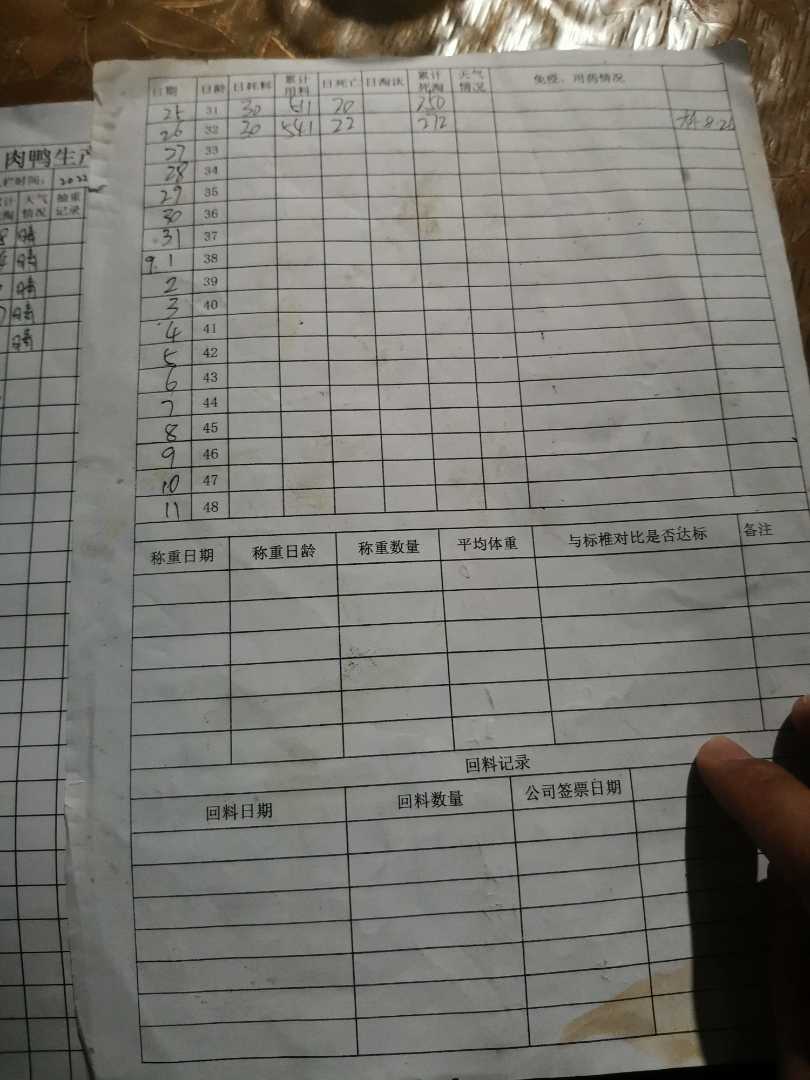 肉鸭生产
栏时间: 2022
天气情况 抽重记录
晴
晴
晴
晴
晴
日期 日龄 日耗料 累计用料 日死亡 日淘汰 累计死淘 天气情况 免疫、用药情况
25 31 30 511 20 250
26 32 30 541 22 272
27 33
28 34
29 35
30 36
31 37
9.1 38
2 39
3 40
4 41
5 42
6 43
7 44
8 45
9 46
10 47
11 48
称重日期 称重日龄 称重数量 平均体重 与标椎对比是否达标 备注
回料记录
回料日期 回料数量 公司签票日期